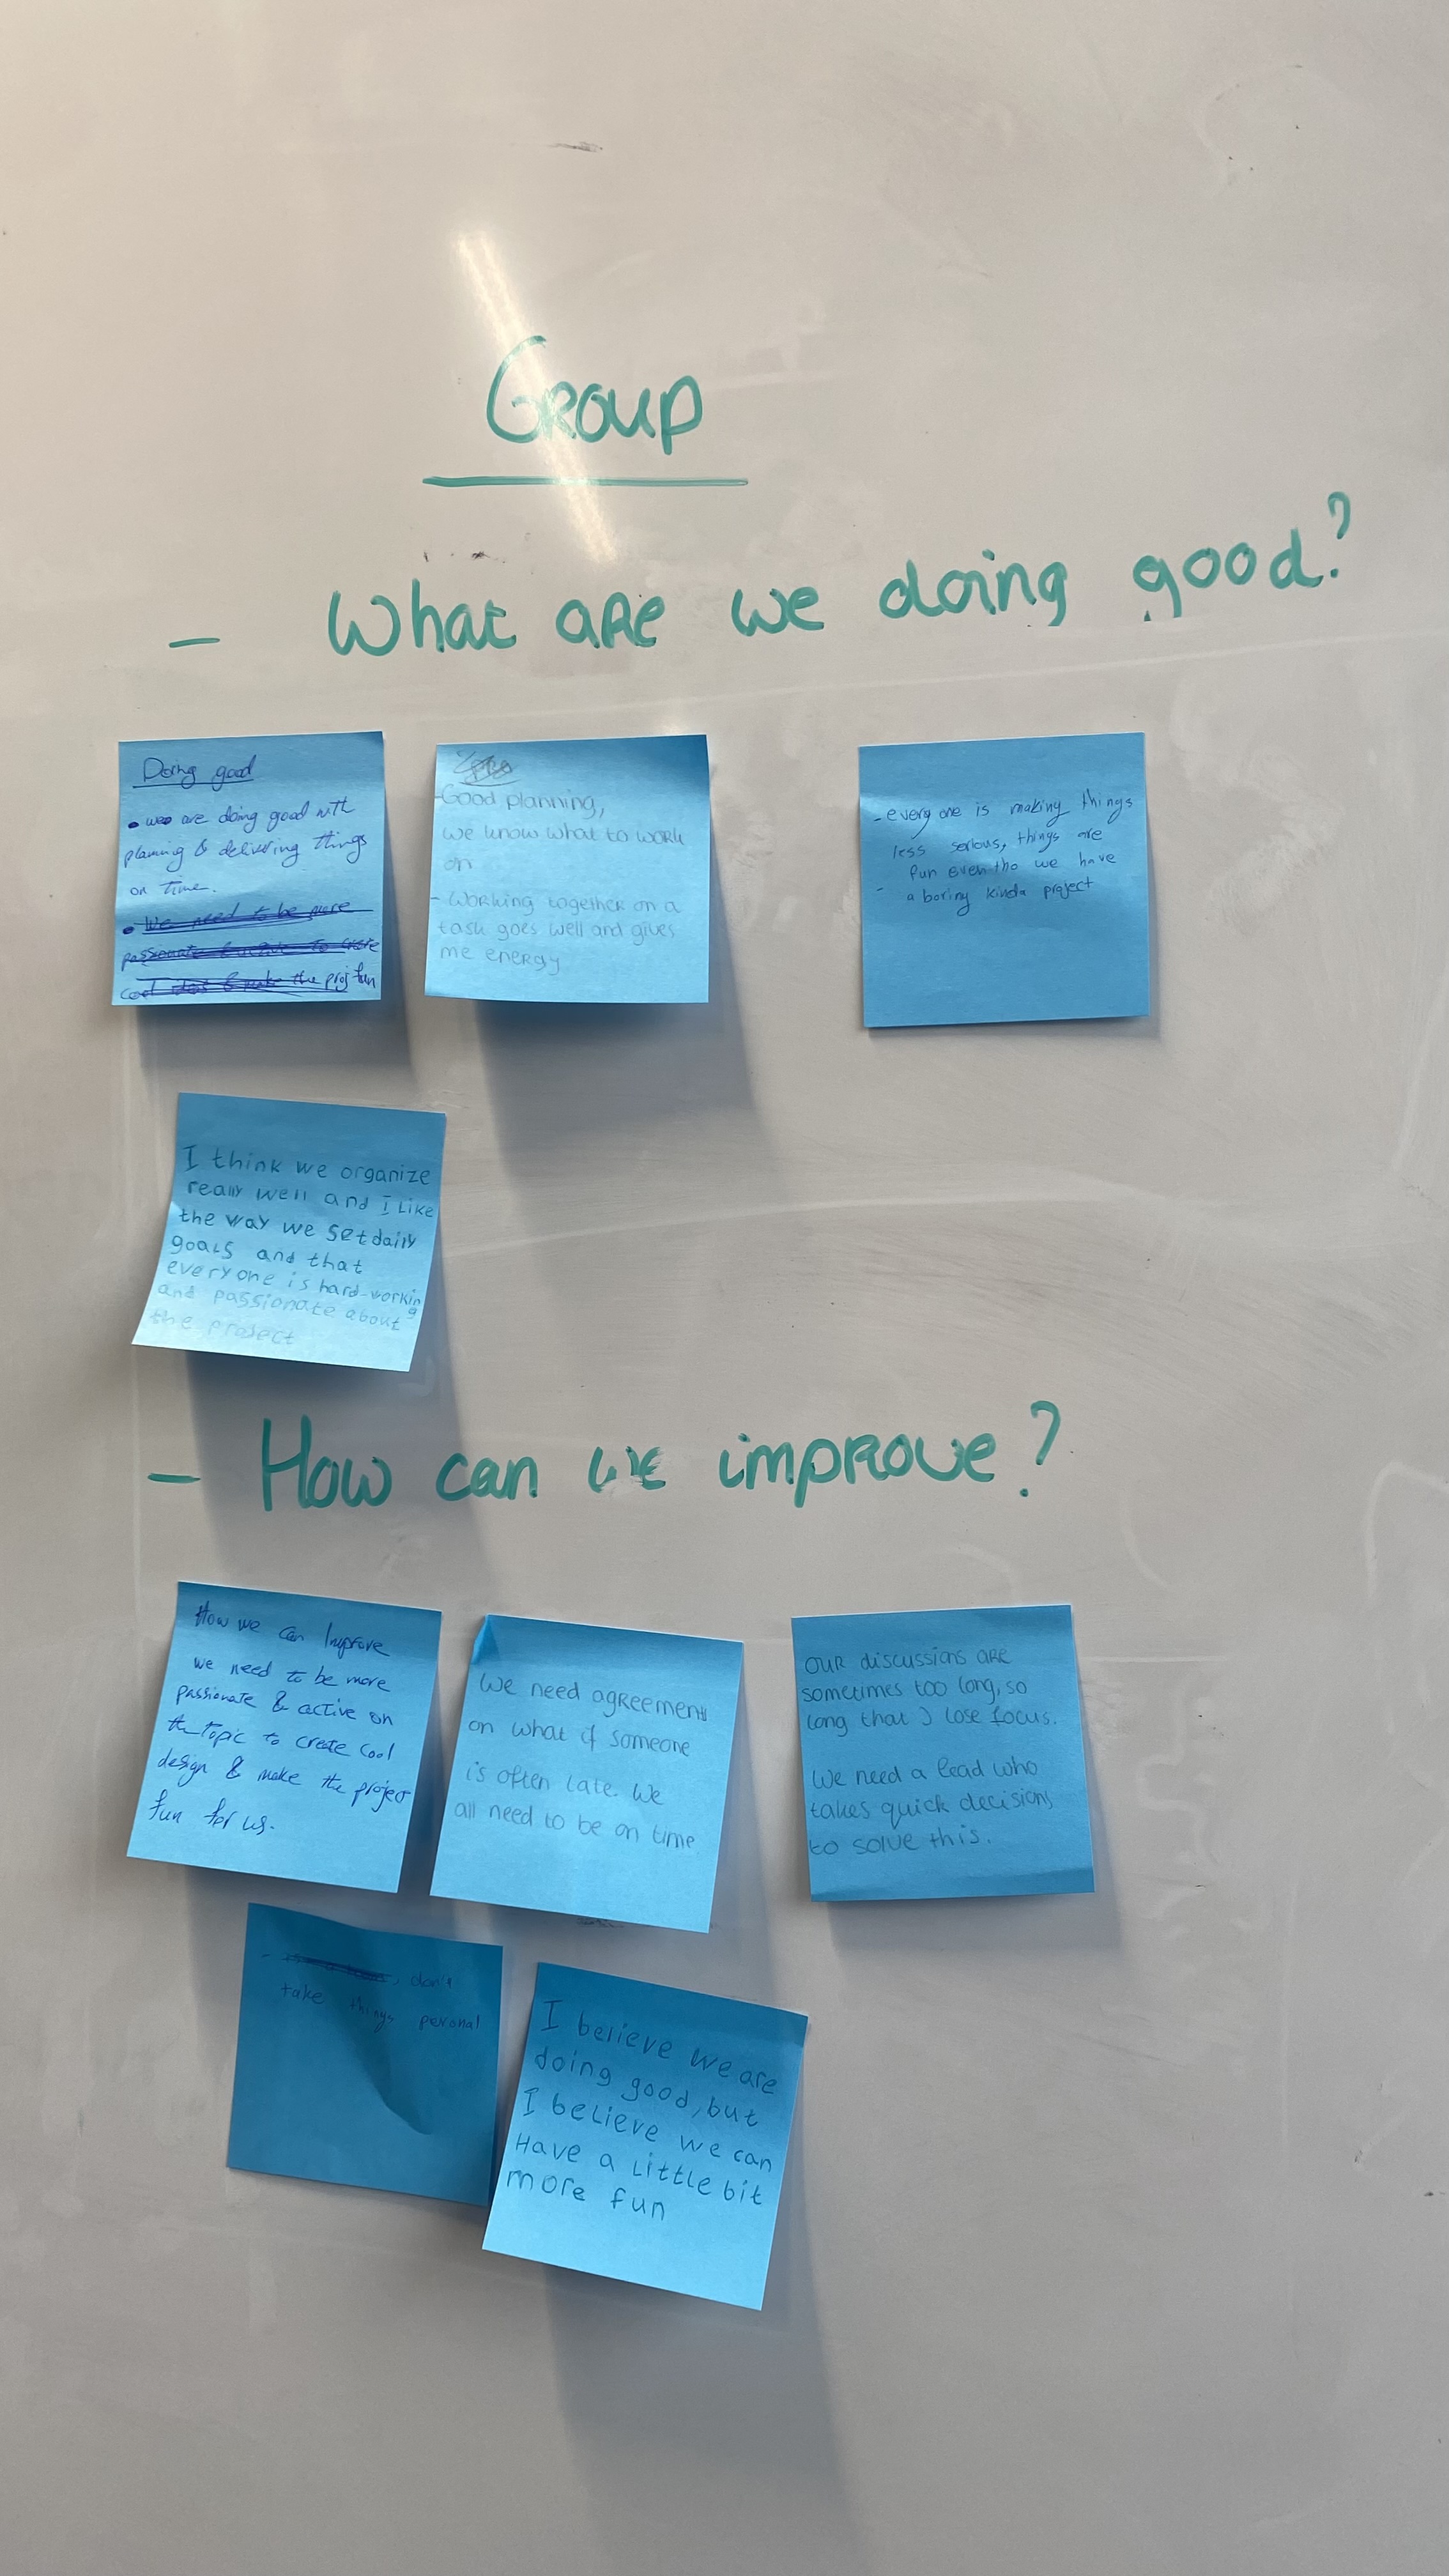 Group
- What are we doing good?
Doing good
• we are doing good with
planning & delivering things
on time.
• We need to be more
passionate & active to create
cool ideas & make the proj fun
-Good planning,
we know what to work
on
- Working together on a
task goes well and gives
me energy
- every one is making things
less serious, things are
fun even tho we have
- a boring kinda project
I think we organize
really well and I Like
the way we set daily
goals and that
everyone is hard-working
and passionate about
the project
- How can we improve?
How we can Improve
we need to be more
passionate & active on
the topic to create cool
design & make the project
fun for us.
We need agreements
on what if someone
is often late. We
all need to be on time
Our discussions are
sometimes too long, so
long that I lose focus.
We need a lead who
takes quick decisions
to solve this.
- don't
take things personal
I believe we are
doing good, but
I believe we can
Have a little bit
more fun